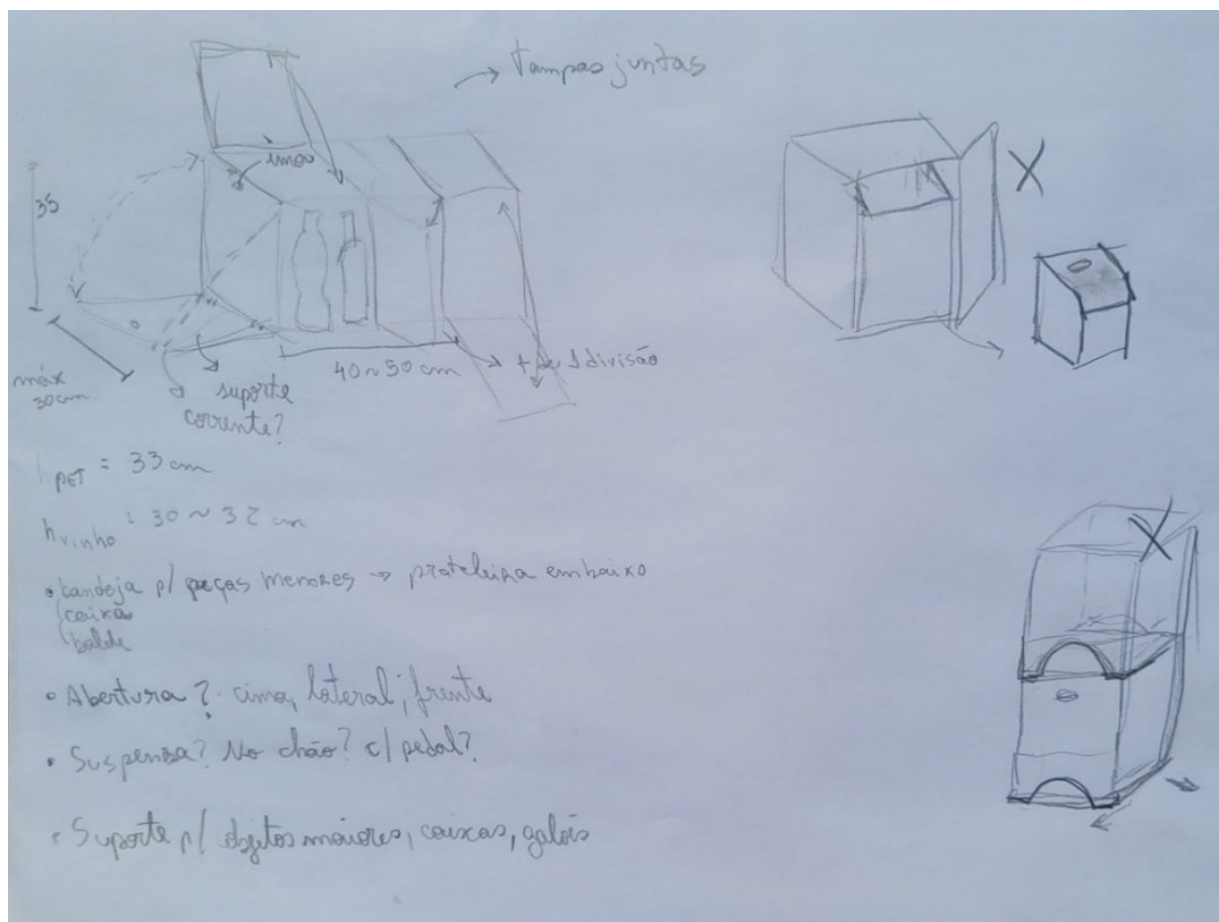 → Tampas juntas
imão
35
máx
30cm
suporte
corrente?
40 ~ 50 cm
+ de 1 divisão
X
X
hPET = 33 cm
hvinho : 30 ~ 32 cm
• bandeja p/ peças menores → prateleira embaixo
caixa
balde
• Abertura ? cima, lateral, frente
• Suspensa? No chão? c/ pedal?
• Suporte p/ objetos maiores, caixas, galões